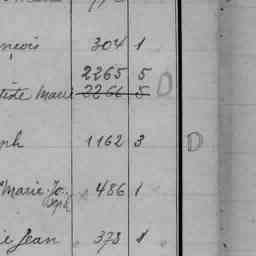 nçois 304 1
2265 5
tiste Marie 2266 5 D
ph 1162 3 D
Marie Jo- 486 1
seph
ie Jean 373 1